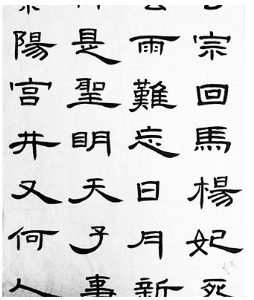 宗回馬楊妃死
雨難忘日月新
是聖明天子事
陽宮井又何人